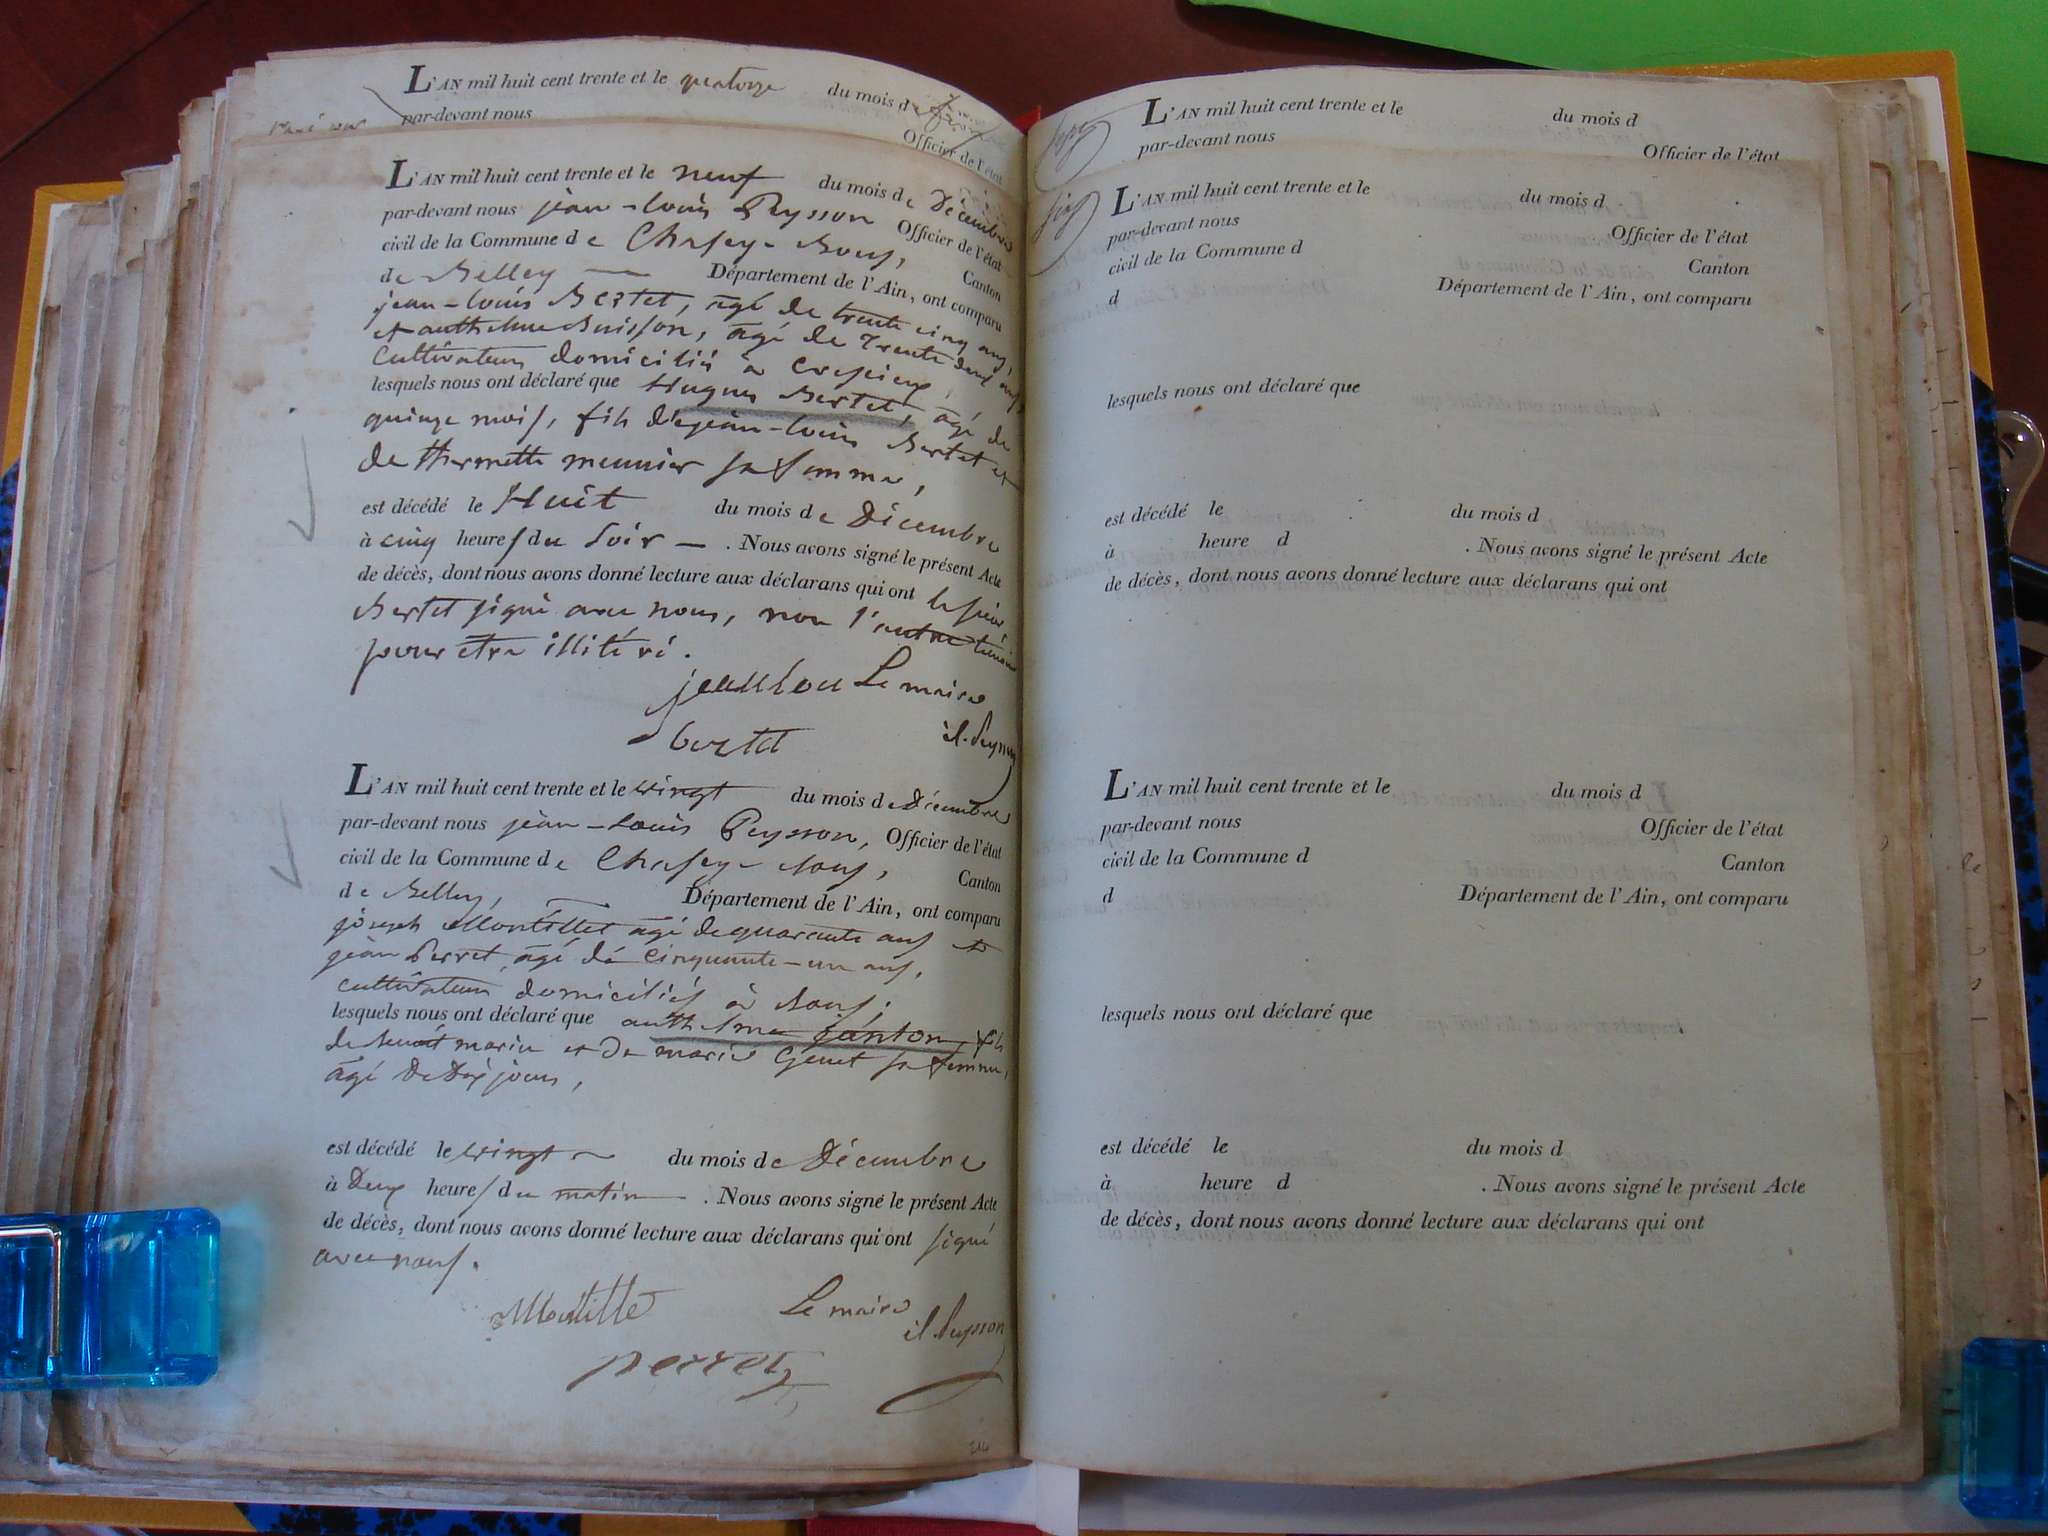 L'AN mil huit cent trente et le quatorze du mois de
par-devant nous
Officier de l'état
L'AN mil huit cent trente et le neuf du mois de Décembre
par-devant nous jean-louis Peysson Officier de l'état
civil de la Commune de Chasey-Bons, Canton
de Belley Département de l'Ain, ont comparu
jean-louis Bertet, âgé de trente cinq ans,
et anthelme Buisson, âgé de Trente deux ans
Cultivateurs domiciliés à Cressieux
lesquels nous ont déclaré que Hugues Bertet, âgé de
quinze mois, fils de jean-louis Bertet et
de thermette meunier sa femme,
est décédé le Huit du mois de Décembre
à cinq heures du soir . Nous avons signé le présent Acte
de décès, dont nous avons donné lecture aux déclarans qui ont le sieur
Bertet signé avec nous, non l'autre témoin
pour etre illitéré.
Le maire
jl. Peysson
L'AN mil huit cent trente et le vingt du mois de Décembre
par-devant nous jean-Louis Peysson, Officier de l'état
civil de la Commune de Chasey-Bons, Canton
de Belley, Département de l'Ain, ont comparu
joseph Montillet agé de quarante ans et
jean Perret, âgé de Cinquante-un ans,
cultivateurs domiciliés à Bons,
lesquels nous ont déclaré que anthelme janton, fils
de benoit marin et de marie Genet sa femme,
âgé de Dix jours,
est décédé le vingt du mois de Décembre
à Deux heures du matin . Nous avons signé le présent Acte
de décès, dont nous avons donné lecture aux déclarans qui ont signé
avec nous.
Montille
Le maire
jl. Peysson
perret
L'AN mil huit cent trente et le du mois d
par-devant nous
Officier de l'état
L'AN mil huit cent trente et le du mois d
par-devant nous Officier de l'état
civil de la Commune d Canton
d Département de l'Ain, ont comparu
lesquels nous ont déclaré que
est décédé le du mois d
à heure d . Nous avons signé le présent Acte
de décès, dont nous avons donné lecture aux déclarans qui ont
L'AN mil huit cent trente et le du mois d
par-devant nous Officier de l'état
civil de la Commune d Canton
d Département de l'Ain, ont comparu
lesquels nous ont déclaré que
est décédé le du mois d
à heure d . Nous avons signé le présent Acte
de décès, dont nous avons donné lecture aux déclarans qui ont